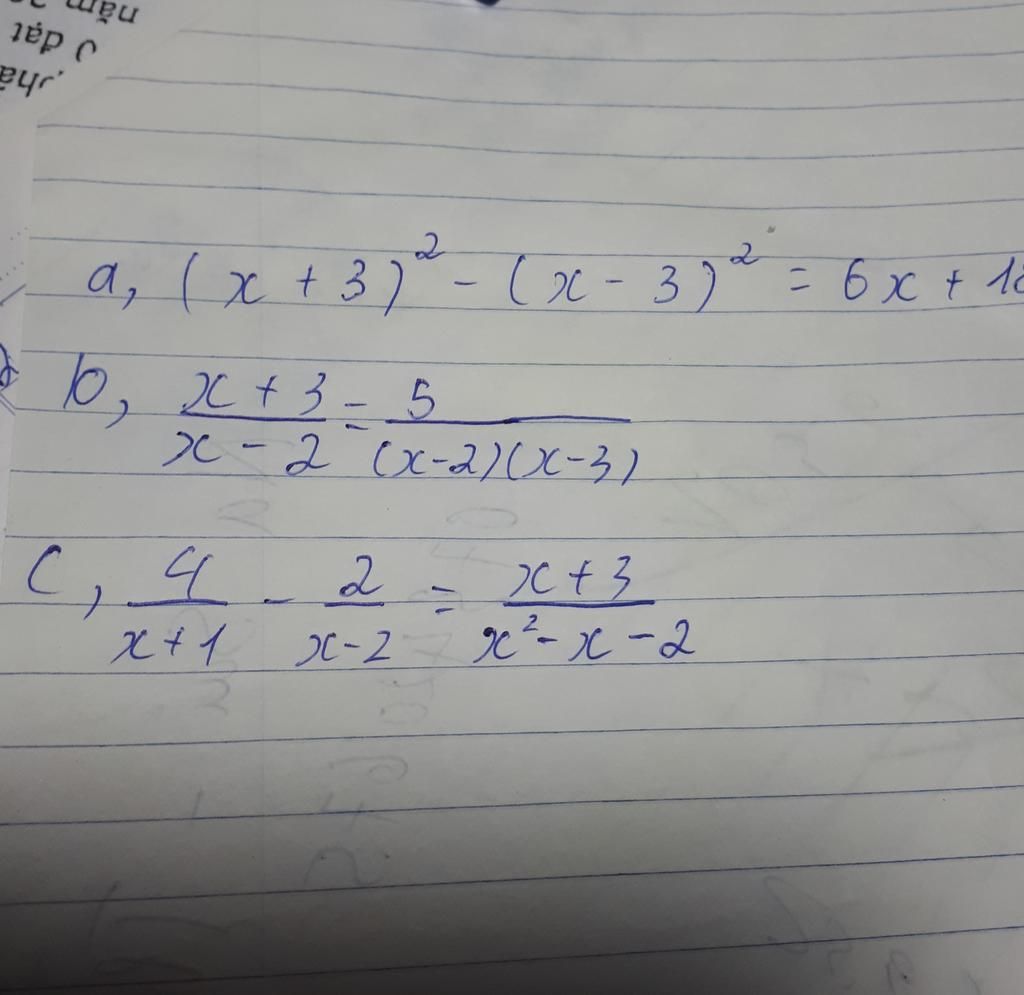 năm
đạt
a, (x + 3)² - (x - 3)² = 6x + 18
b, \frac{x + 3}{x - 2} = \frac{5}{(x-2)(x-3)}
c, \frac{4}{x+1} - \frac{2}{x-2} = \frac{x+3}{x²-x-2}